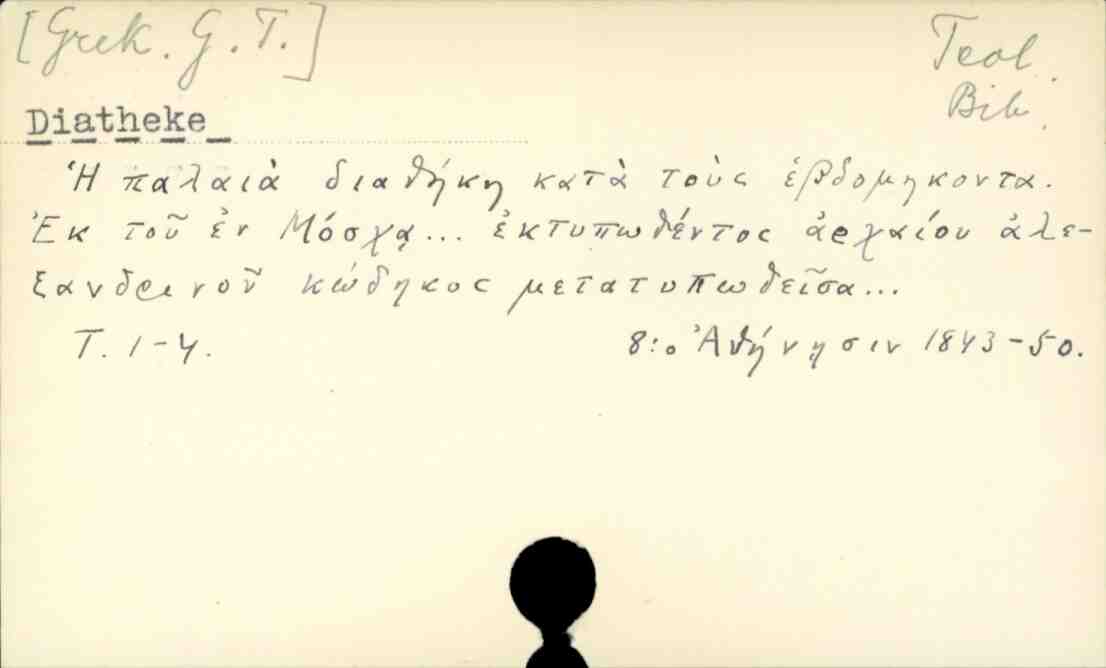 [Grek. G. T.]
Teol.
Bib.
Diatheke
Ἡ παλαιὰ διαθήκη κατὰ τοὺς ἑβδομηκοντα.
Ἐκ τοῦ ἐν Μόσχᾳ... ἐκτυπωθέντος ἀρχαίου ἀλε-
ξανδρινοῦ κώδηκος μετατυπωθεῖσα...
T. 1-4. 8:o Ἀθήνησιν 1843-50.